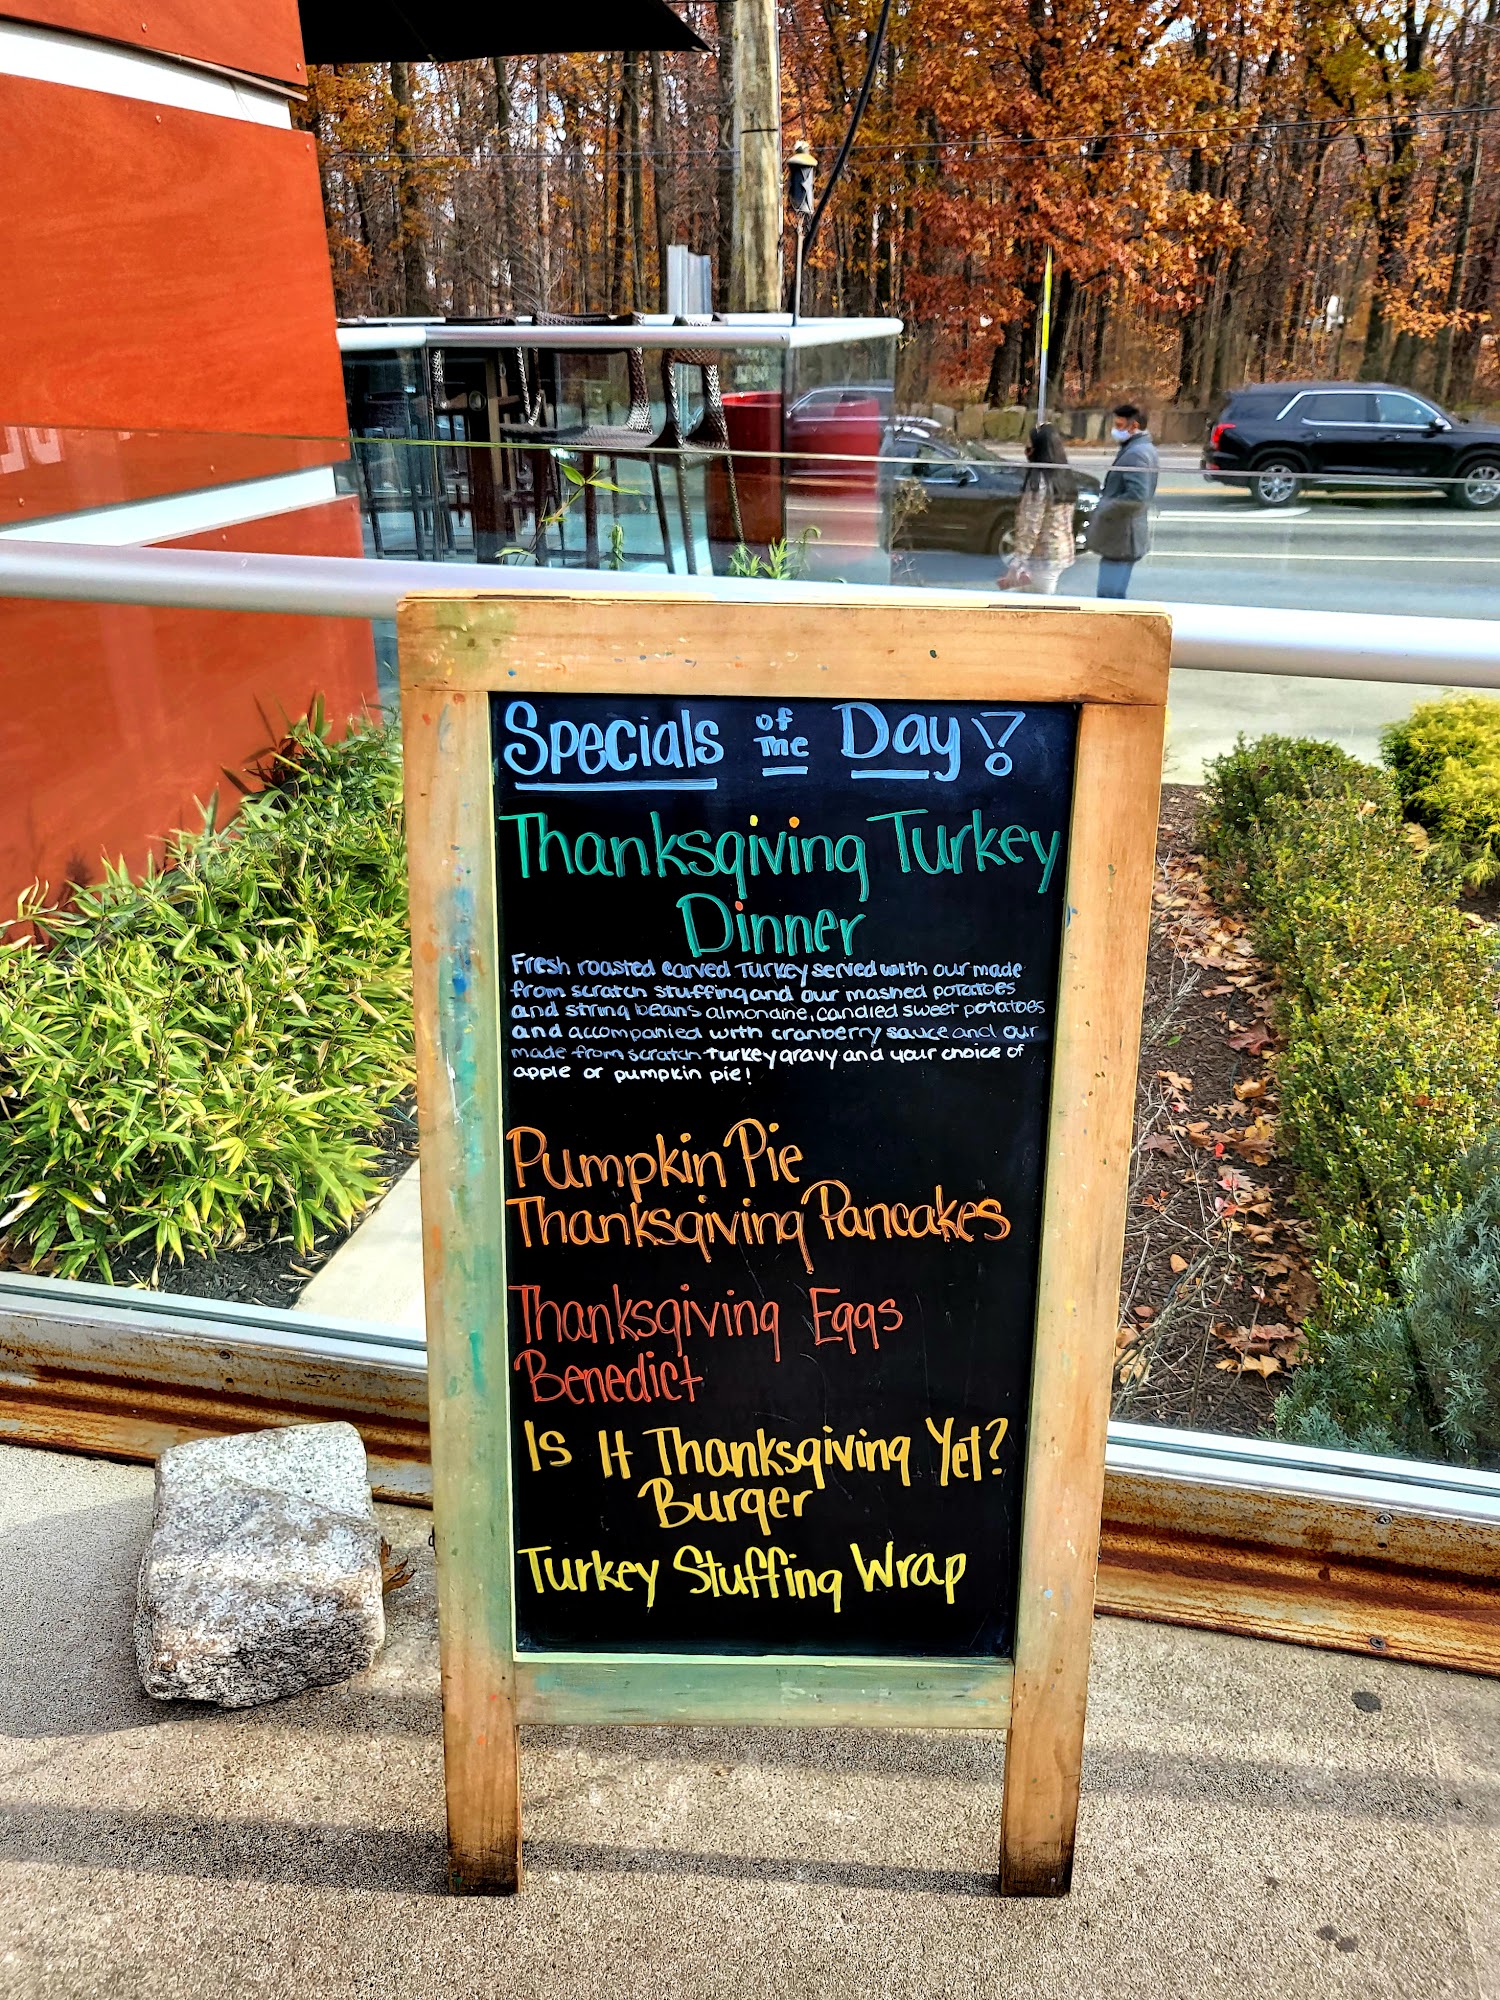 Specials of the Day!
Thanksgiving Turkey
Dinner
Fresh roasted carved Turkey served with our made
from scratch stuffing and our mashed potatoes
and string beans almondine, candied sweet potatoes
and accompanied with cranberry sauce and our
made from scratch turkey gravy and your choice of
apple or pumpkin pie!
Pumpkin Pie
Thanksgiving Pancakes
Thanksgiving Eggs
Benedict
Is It Thanksgiving Yet?
Burger
Turkey Stuffing Wrap